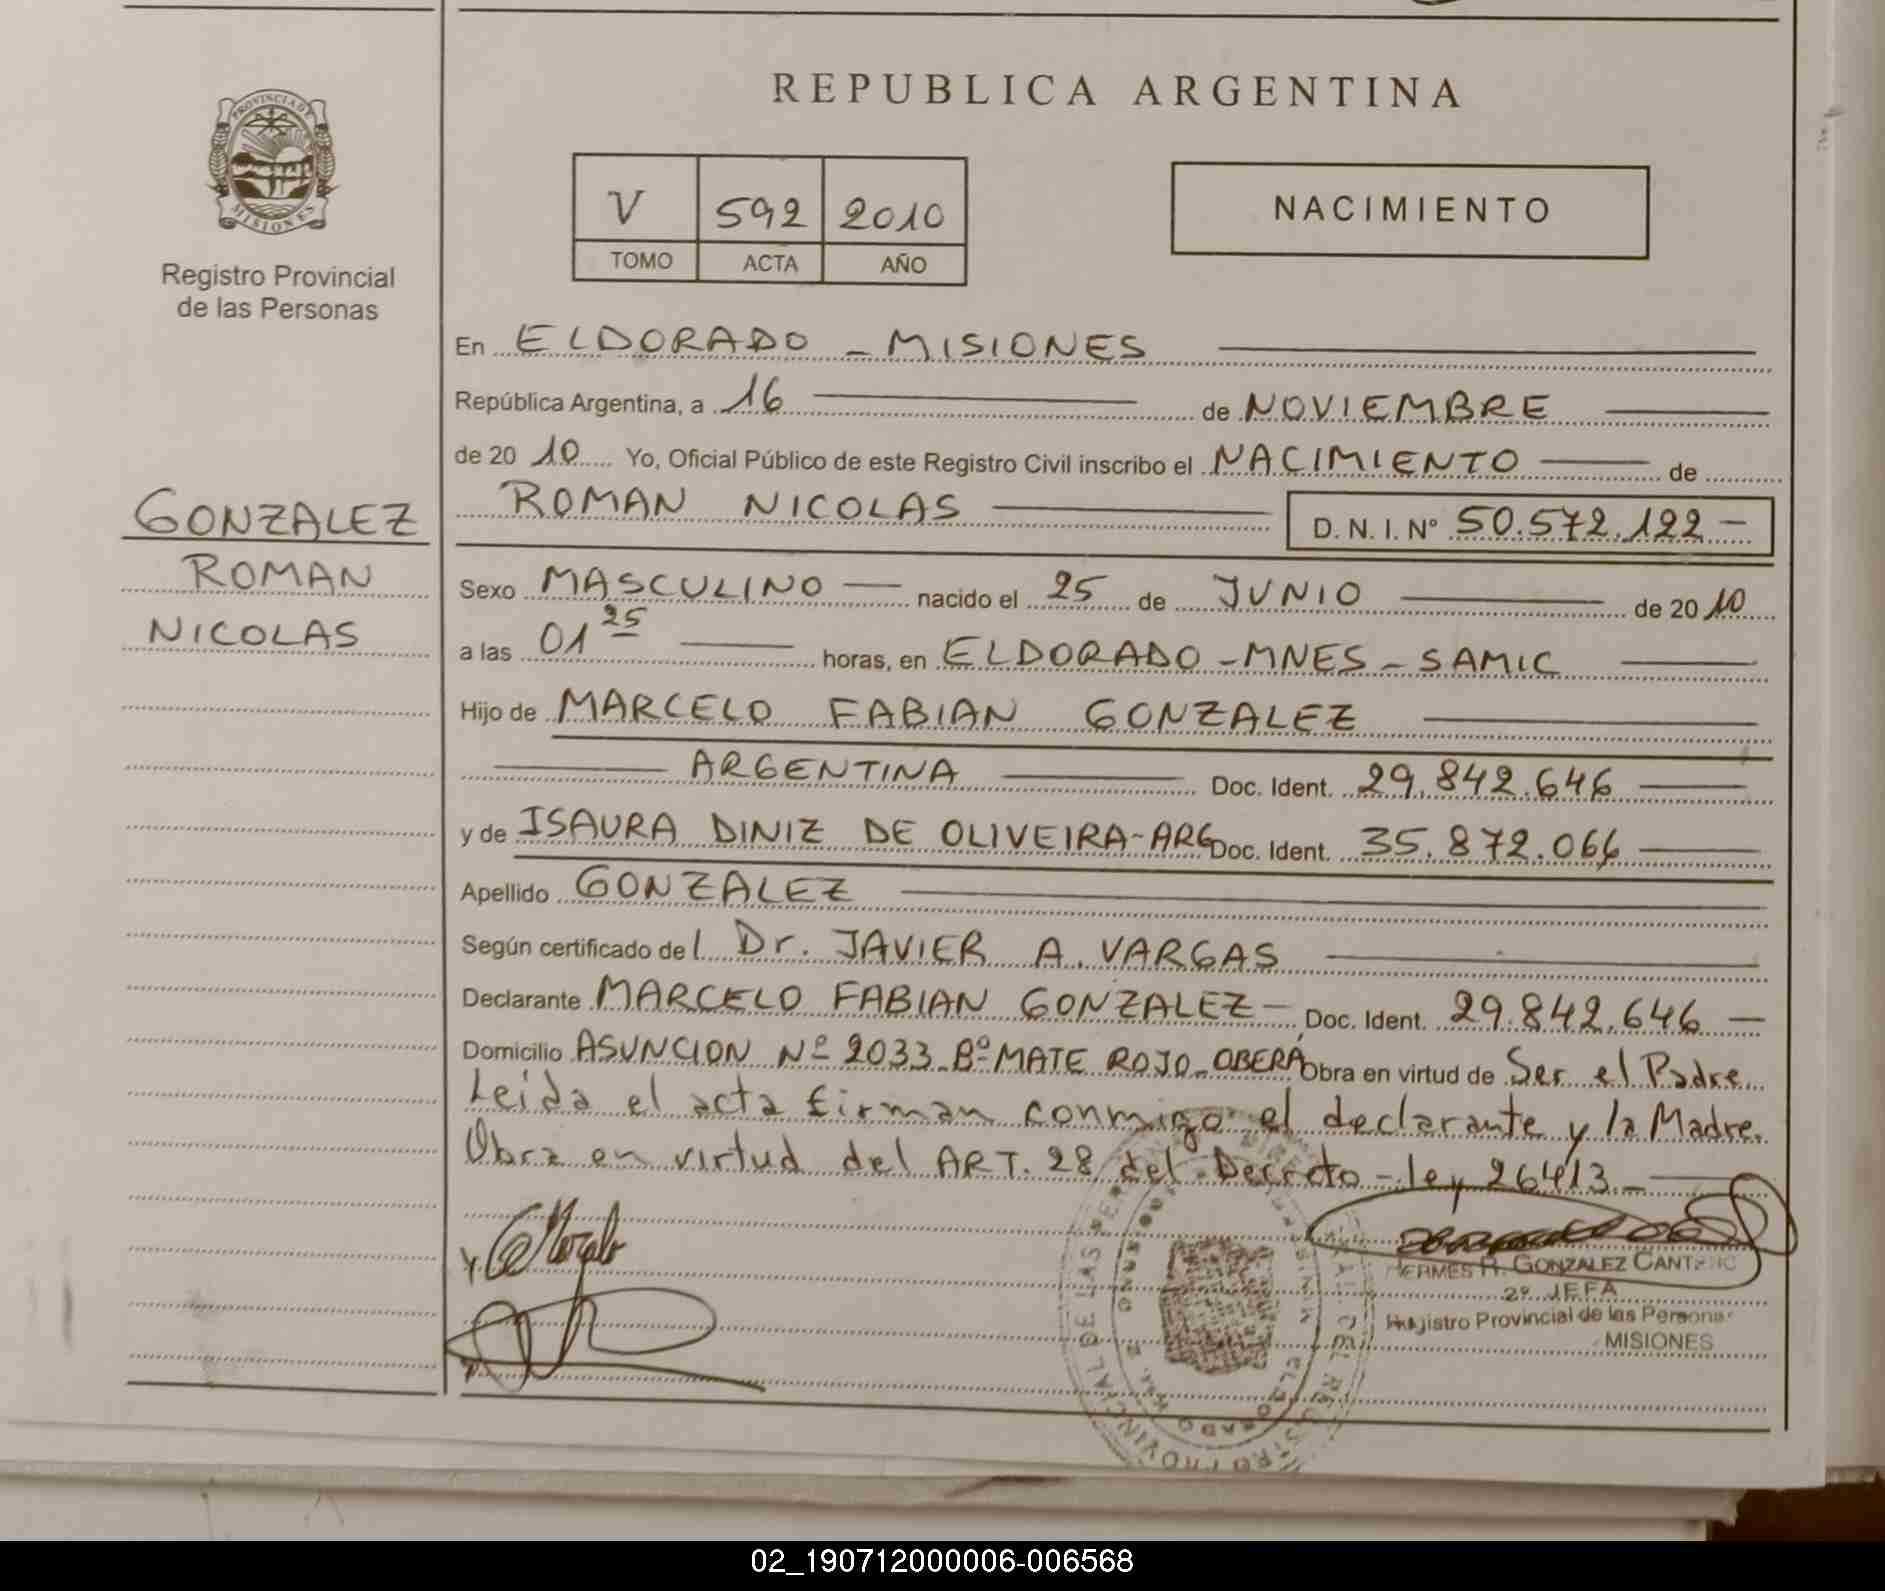 REPUBLICA ARGENTINA
PROVINCIA D MISIONES
Registro Provincial
de las Personas
V 592 2010
TOMO ACTA AÑO
NACIMIENTO
En ELDORADO - MISIONES
República Argentina, a 16 de NOVIEMBRE
de 20 10 Yo, Oficial Público de este Registro Civil inscribo el NACIMIENTO de
ROMAN NICOLAS D. N. I. Nº 50.572.122 -
GONZALEZ
ROMAN
NICOLAS
Sexo MASCULINO nacido el 25 de JUNIO de 20 10
a las 01 25 horas, en ELDORADO - MNES - SAMIC
Hijo de MARCELO FABIAN GONZALEZ
ARGENTINA Doc. Ident. 29.842.646
y de ISAURA DINIZ DE OLIVEIRA-ARG Doc. Ident. 35.872.066
Apellido GONZALEZ
Según certificado del Dr. JAVIER A. VARGAS
Declarante MARCELO FABIAN GONZALEZ - Doc. Ident. 29.842.646 -
Domicilio ASUNCION Nº 2033 - Bº MATE ROJO - OBERA Obra en virtud de Ser el Padre
Leida el acta firman conmigo el declarante y la Madre.
Obra en virtud del ART. 28 del Decreto - ley 26413 -
HERMES R. GONZALEZ
2º JEFA
Registro Provincial de las Personas
MISIONES
02_190712000006-006568